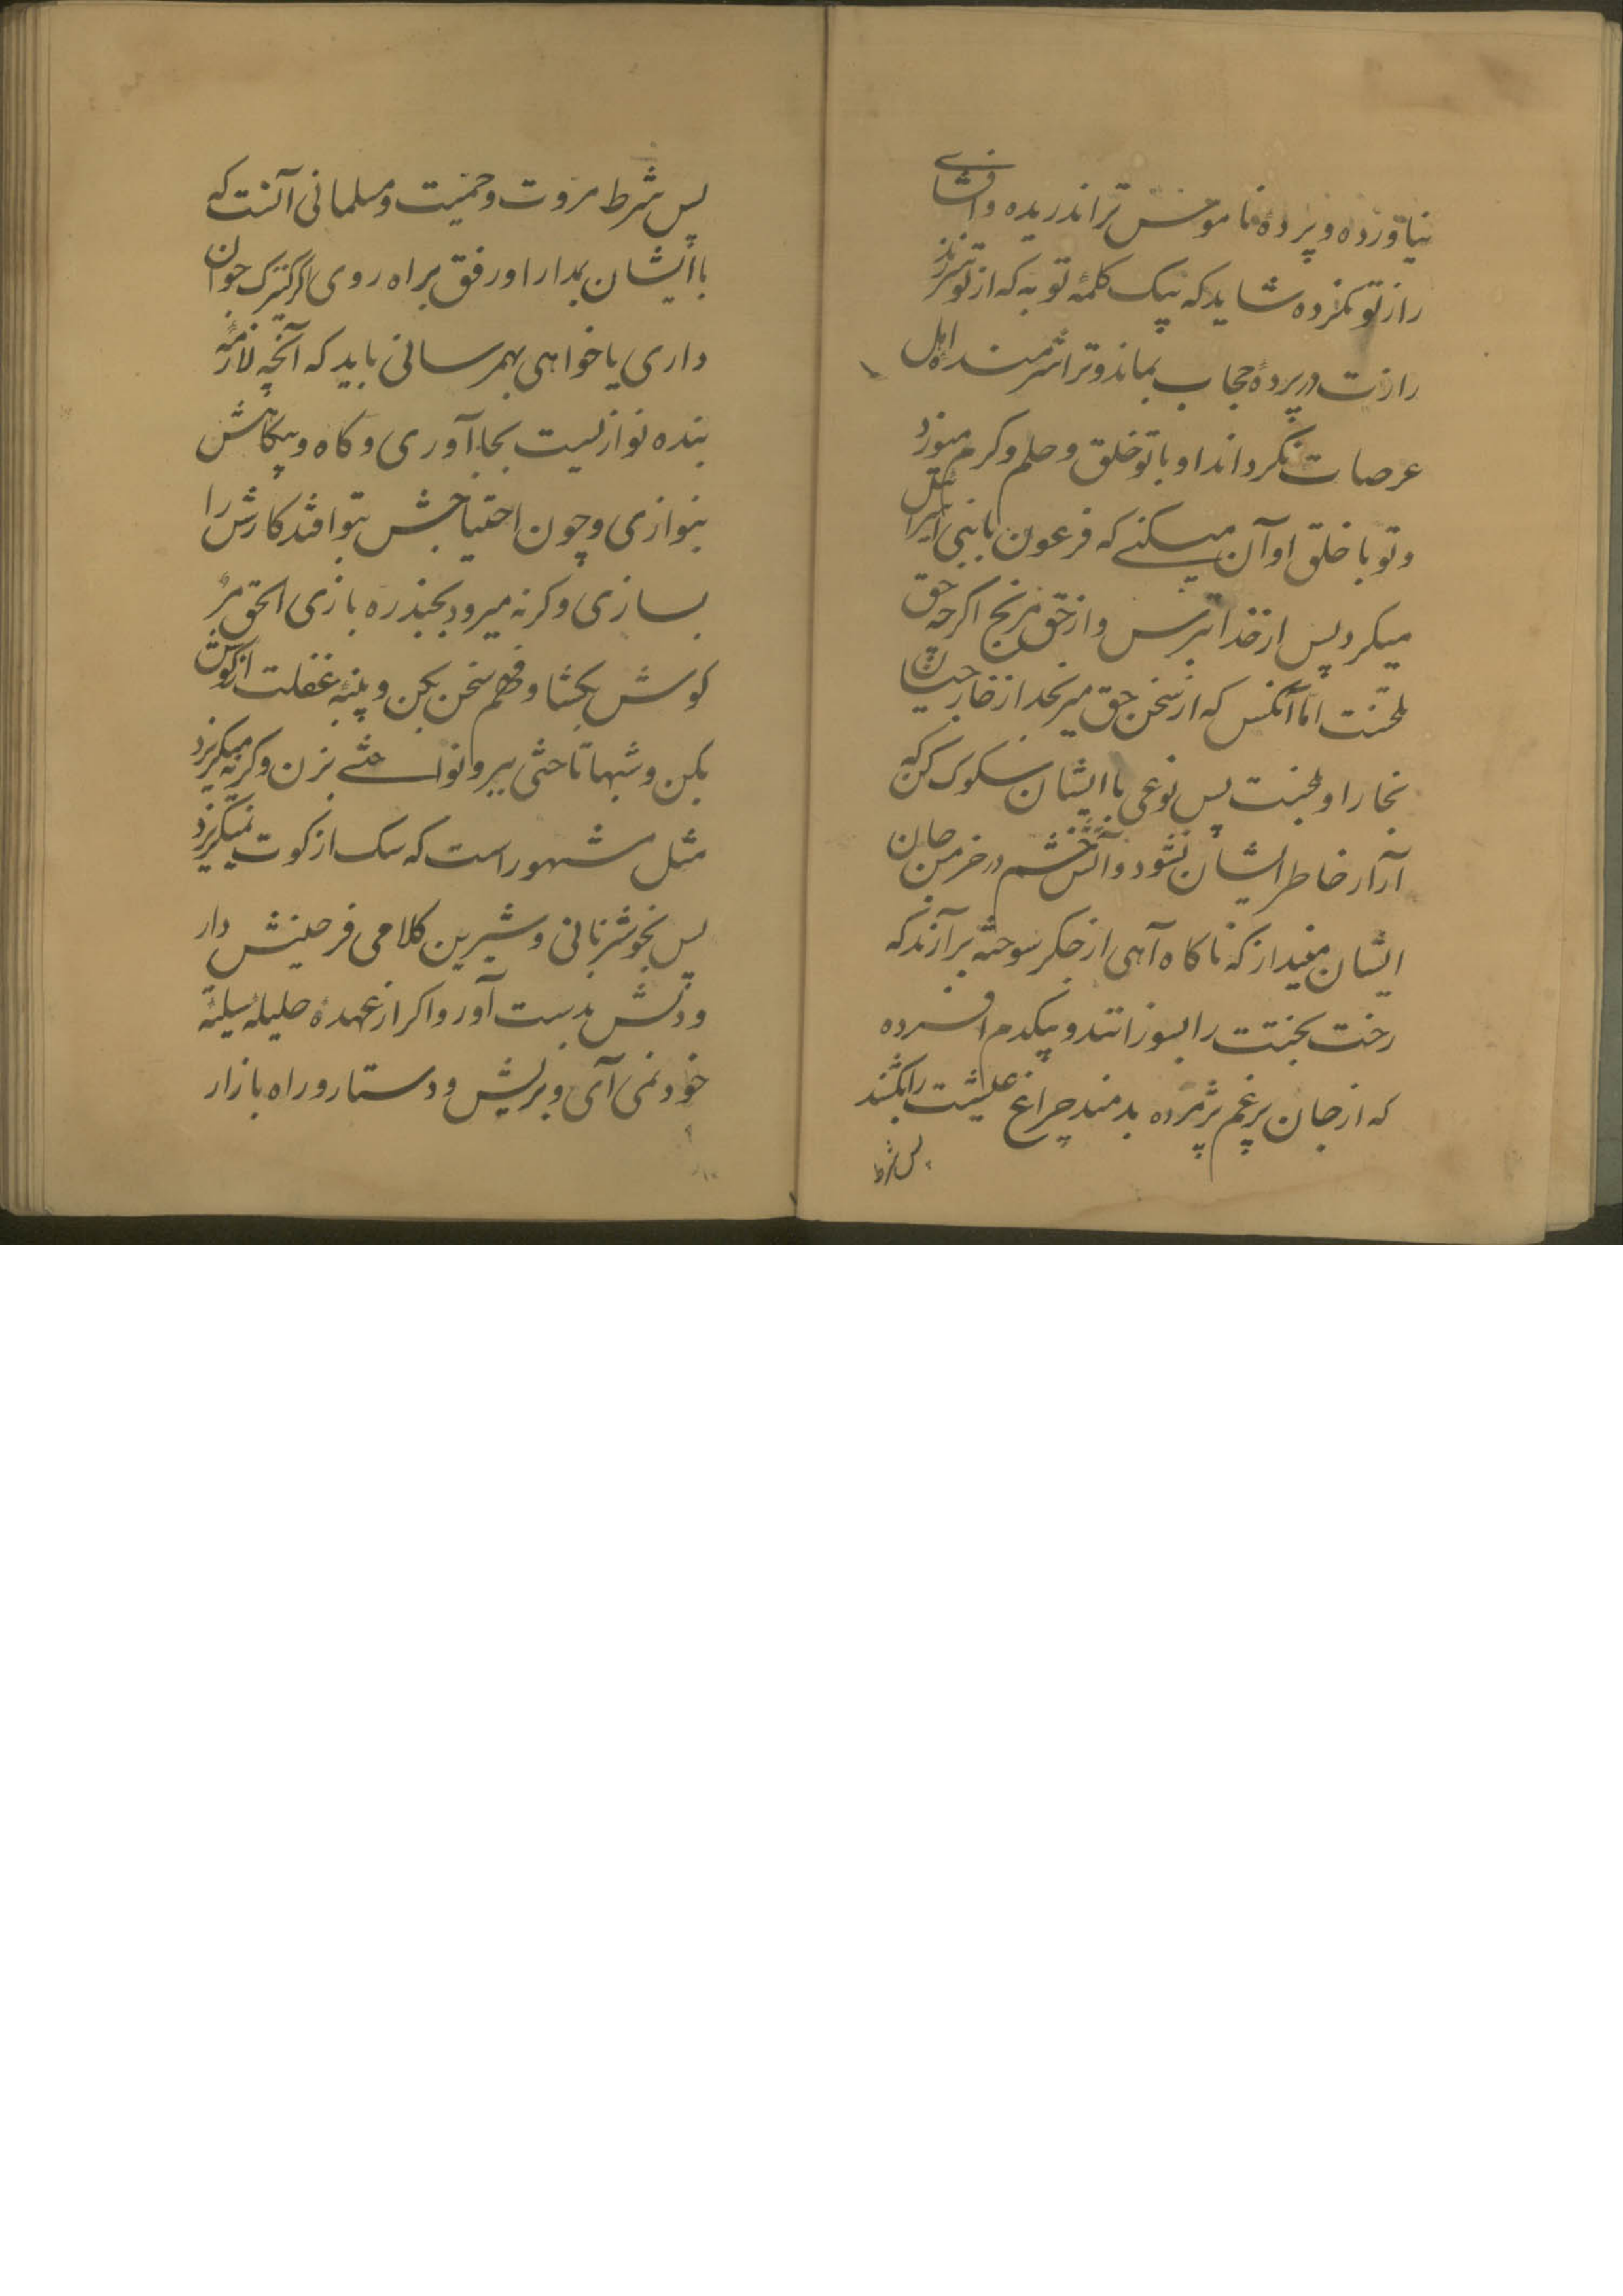 نیاورده و پردهٔ ناموس ترا ندریده و افشای
راز تو نکرده شاید که بیک کلمهٔ توبه که از تو سر زند
رازت در پردهٔ حجاب بماند و ترا شرمنده اهل
عرصات نگرداند او با تو خلق و حلم و کرم میورزد
و تو با خلق او آن میکنے که فرعون با بنی اسرائیل
میکرد پس از خدا بترس و از حق مرنج اکرچه حق
تلخست اما آنکس که از سخن حق میرنجد از
پس نوعی با ایشان سلوک کن که
آزار خاطر ایشان نشود و آتش خشم در خرمن جان
ایشان مینداز که ناکاه آهی از جکر سوخته برآرند که
رخت بختت را بسوزانند و بیکدم افسرده
که از جان پرغم پژمرده بدمند چراغ عیشت را بکشند
پس شرط
پس شرط مروت و حمیت و مسلمانی آنست که
با ایشان بمدارا و رفق براه روی اکر کنیزک جوان
داری یا خواهی بهم رسانی باید که آنچه لازمهٔ
بنده نوازیست بجا آوری و کاه و بیکاهش
بنوازی و چون احتیاجش بتو افتد کارش را
بسازی وکرنه میرود بجنده بازی الحق مر
کوش بکشا و فهم سخن بکن و پنبهٔ غفلت از کوش
بکن و شبها تا حتی بیرو نواسے بزن وکرنه میکریزد
مثل مشهور است که سک از کوت نمیکریزد
پس بخوشزبانی و شیرین کلامی فرحینش دار
و دلش بدست آور و اکر از عهدهٔ حلیلهٔ
خود نمی آی و بریش و دستار و راه بازار